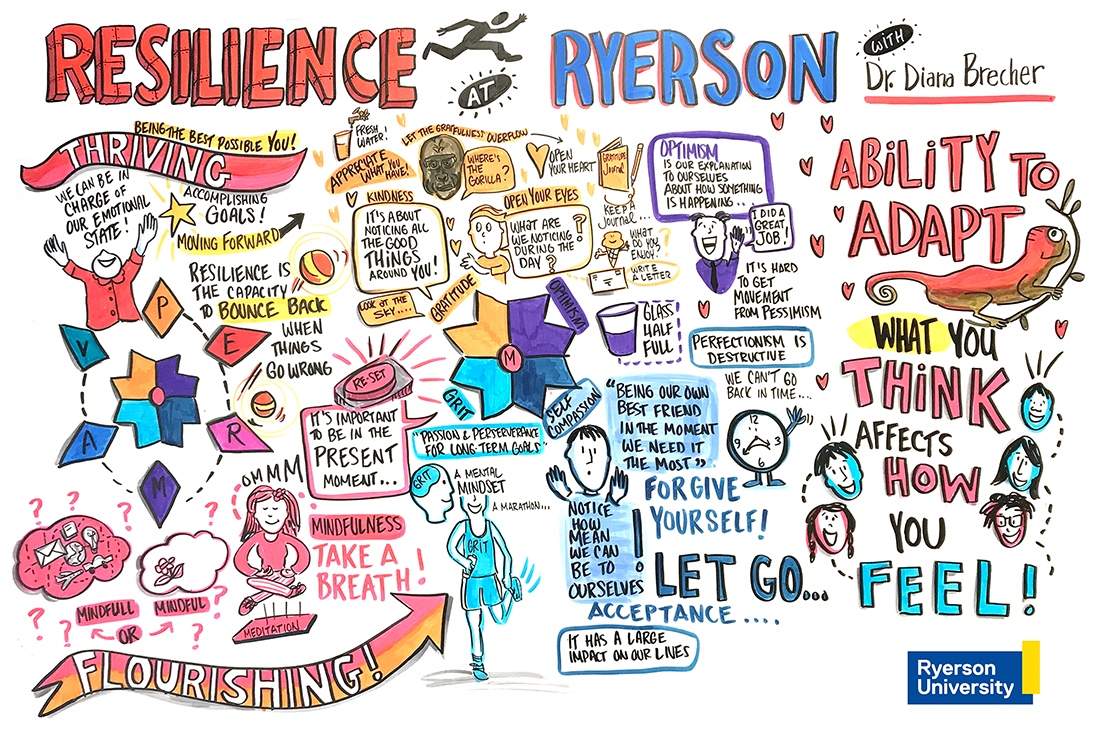 RESILIENCE
AT
RYERSON
WITH
Dr. Diana Brecher
BEING THE BEST POSSIBLE YOU!
THRIVING
WE CAN BE IN
CHARGE OF
OUR EMOTIONAL
STATE!
ACCOMPLISHING
GOALS!
MOVING FORWARD
RESILIENCE IS
THE CAPACITY
TO BOUNCE BACK
WHEN
THINGS
GO WRONG
P
E
R
M
A
V
FRESH
WATER!
APPRECIATE
WHAT YOU
HAVE!
LET THE GRATFULNESS OVERFLOW
WHERE'S
THE
GORILLA?
OPEN
YOUR HEART
GRATITUDE
JOURNAL
KINDNESS
IT'S ABOUT
NOTICING ALL
THE GOOD
THINGS
AROUND YOU!
OPEN YOUR EYES
WHAT ARE
WE NOTICING
DURING THE
DAY?
KEEP A
JOURNAL...
WHAT
DO YOU
ENJOY?
WRITE
A LETTER
LOOK AT THE
SKY....
GRATITUDE
OPTIMISM
GRIT
SELF
COMPASSION
M
OPTIMISM
IS OUR EXPLANATION
TO OURSELVES
ABOUT HOW SOMETHING
IS HAPPENING..
I DID A
GREAT
JOB!
IT'S HARD
TO GET
MOVEMENT
FROM PESSIMISM
GLASS
HALF
FULL
PERFECTIONISM IS
DESTRUCTIVE
WE CAN'T GO
BACK IN TIME....
12
3
6
9
RE-SET
IT'S IMPORTANT
TO BE IN THE
PRESENT
MOMENT...
"PASSION & PERSERVERANCE
FOR LONG TERM GOALS"
GRIT
A MENTAL
MINDSET
A MARATHON...
GRIT
"BEING OUR OWN
BEST FRIEND
IN THE MOMENT
WE NEED IT
THE MOST"
FORGIVE
YOURSELF!
NOTICE
HOW
MEAN
WE CAN
BE TO
OURSELVES
!
LET GO...
ACCEPTANCE....
IT HAS A LARGE
IMPACT ON OUR LIVES
OMMM
MINDFULNESS
TAKE A
BREATH!
MEDITATION
? ? ? ? ? ? ? ?
MINDFULL
OR
MINDFUL
FLOURISHING!
ABILITY TO
ADAPT
WHAT YOU
THINK
AFFECTS
HOW
YOU
FEEL!
Ryerson
University